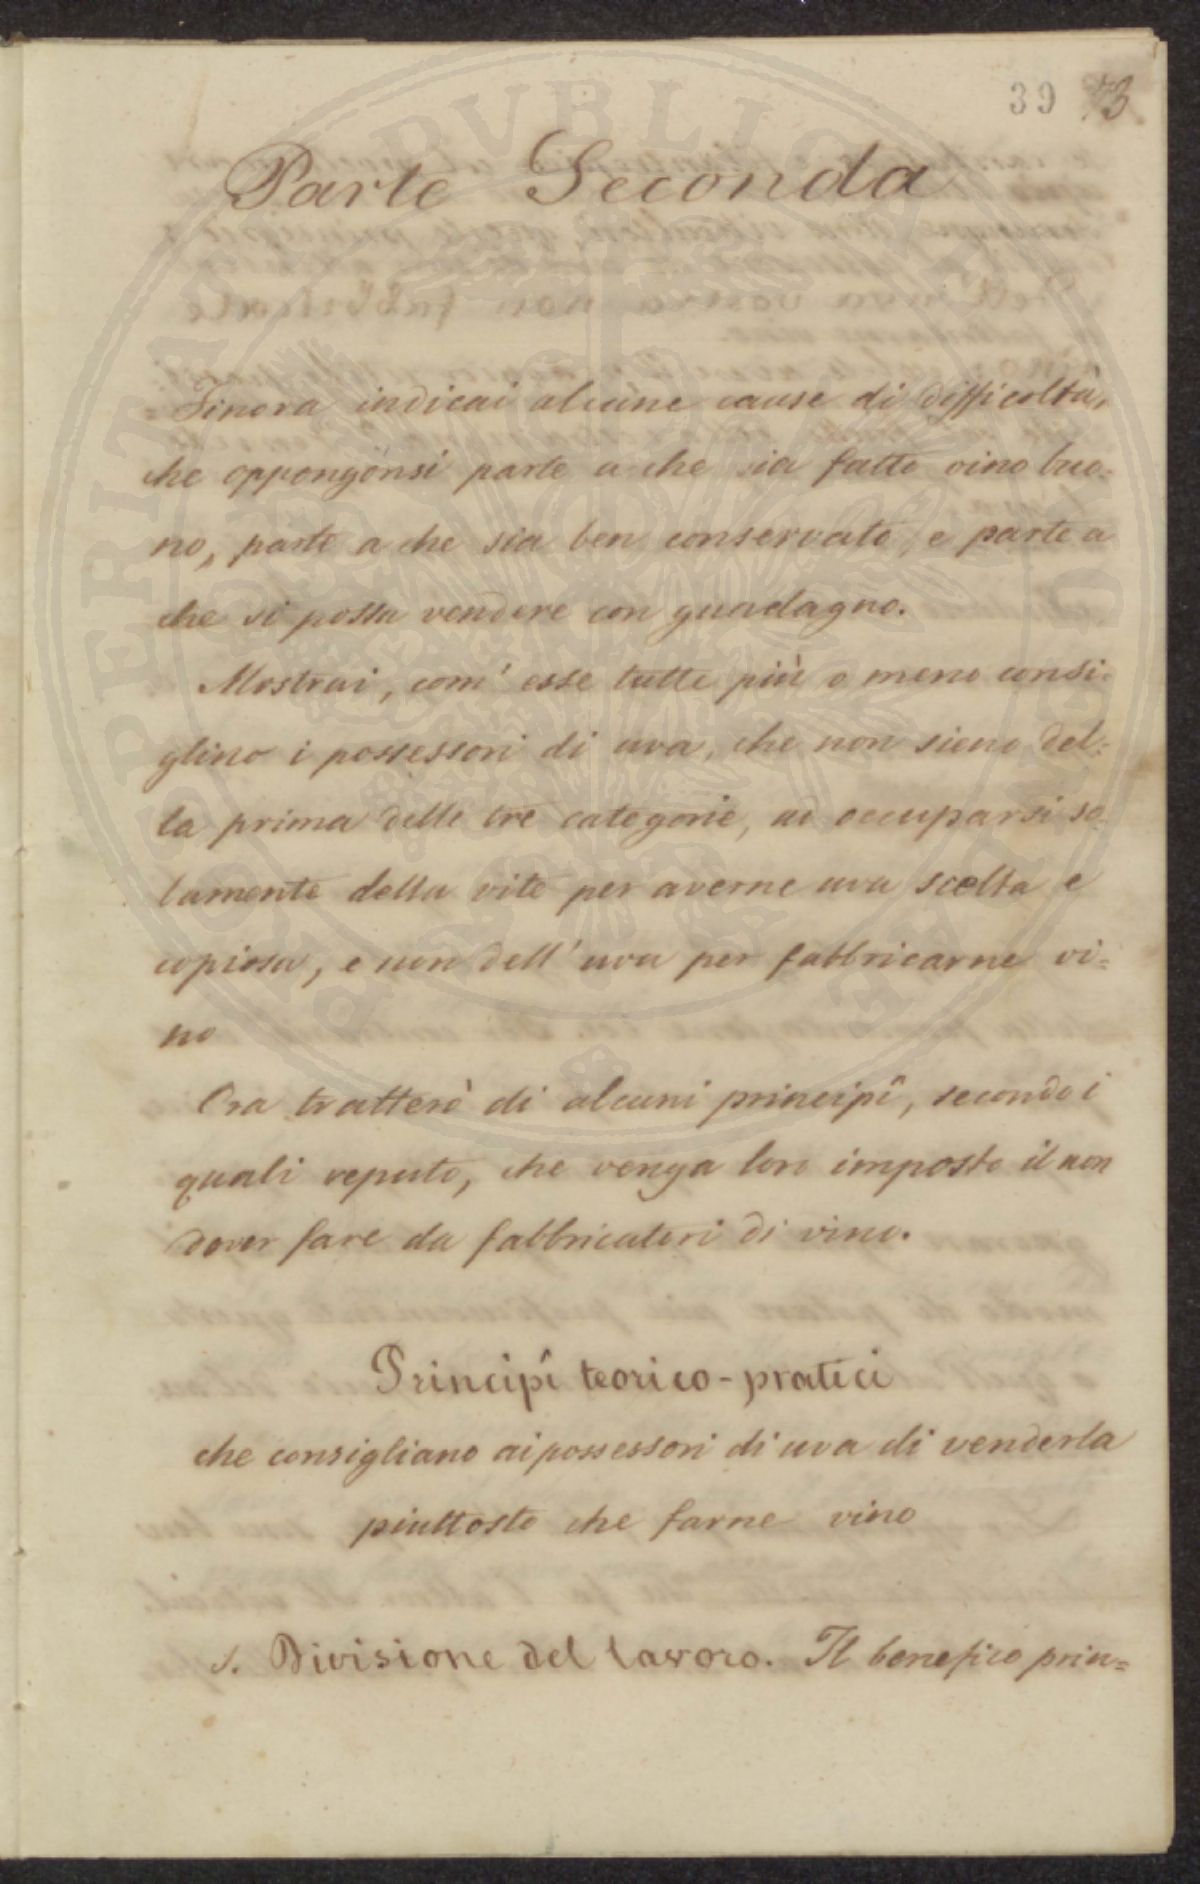 39 73
Parte Seconda
Finora indicai alcune cause di difficoltà,
che oppongonsi parte a che sia fatto vino buo-
no, parte a che sia ben conservato, e parte a
che si possa vendere con guadagno.
Mostrai, com' esse tutte più o meno consi-
glino i possessori di uva, che non sieno del-
la prima delle tre categorie, ad occuparsi so-
lamente della vite per averne uva scelta e
copiosa, e non dell' uva per fabbricarne vi=
no
Ora tratterò di alcuni principî, secondo i
quali reputo, che venga loro imposto il non
dover fare da fabbricatori di vino.
Principî teorico-pratici
che consigliano ai possessori di uva di venderla
piuttosto che farne vino
1. Divisione del lavoro. Il benefico prin=
PUBLICAE PROSPERITATI